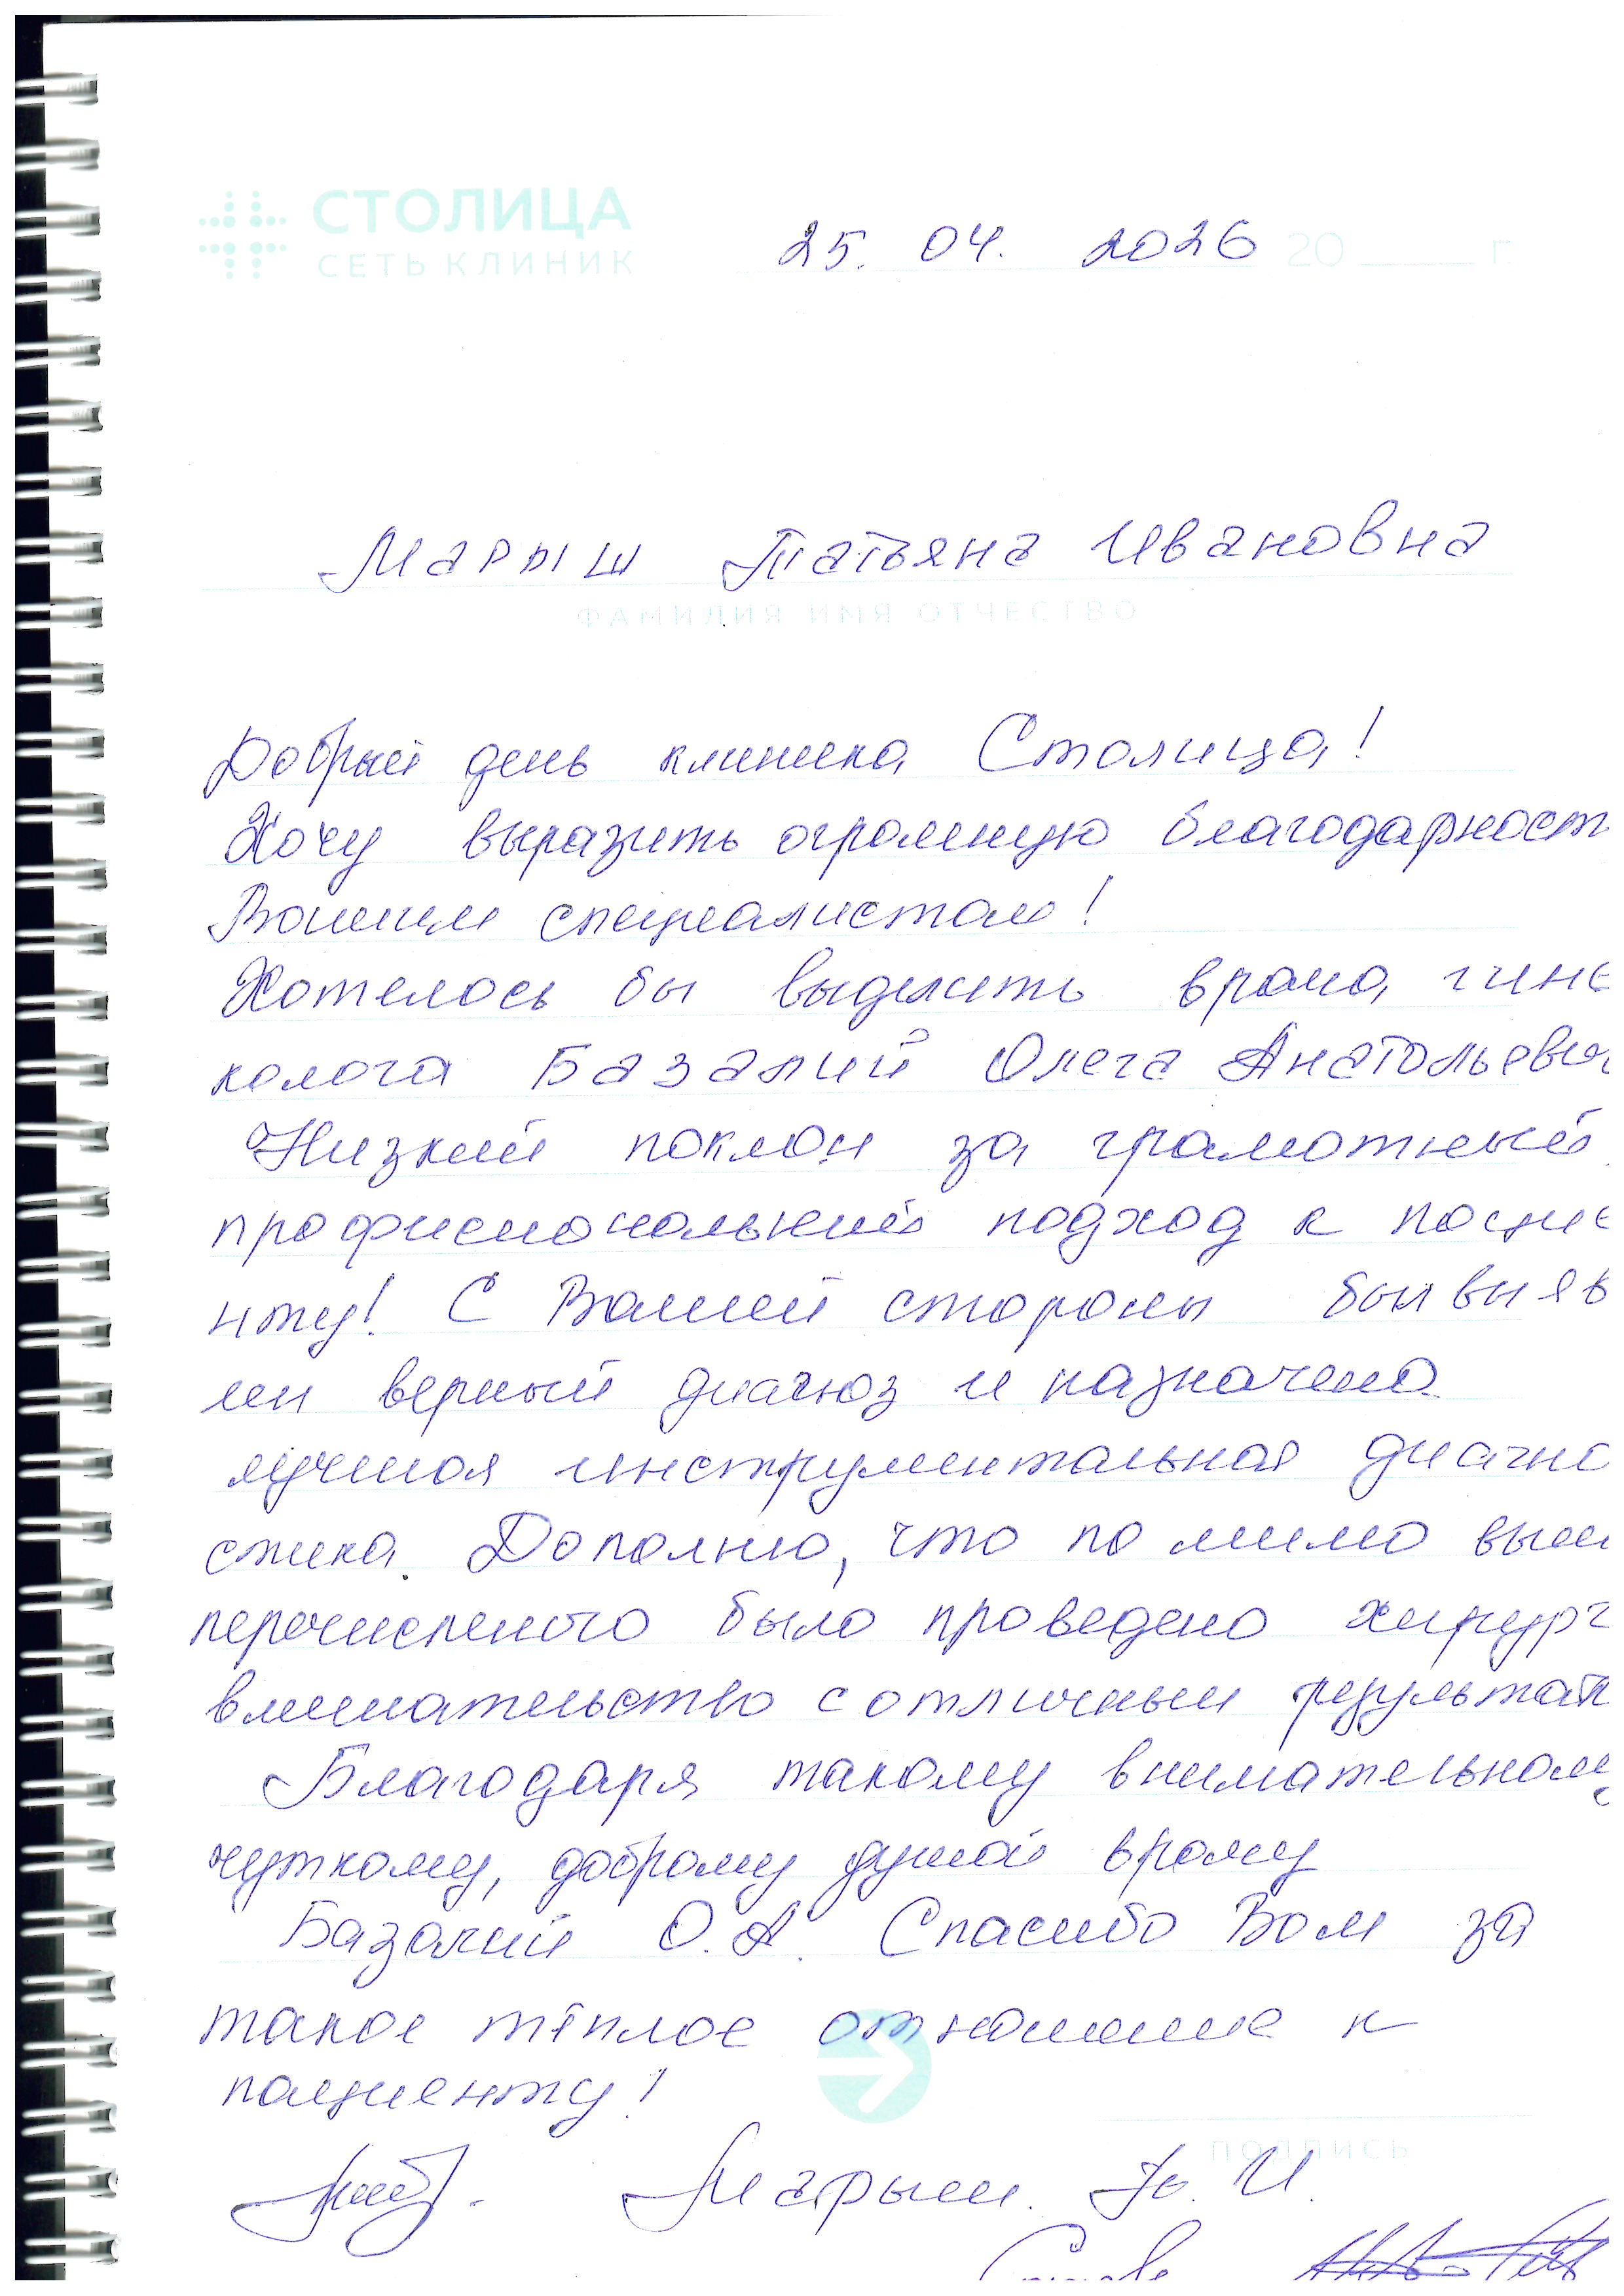 СТОЛИЦА
СЕТЬ КЛИНИК
25. 04. 2026 20 г.
Марыш Татьяна Ивановна
ФАМИЛИЯ ИМЯ ОТЧЕСТВО
Добрый день клиника Столица!
Хочу выразить огромную благодарност
Вашим специалистам!
Хотелось бы выделить врача гине
колога Базалий Олега Анатольевич
Низкий поклон за грамотный,
профисиональный подход к пацие
нту! С Вашей стороны был выяв
лен верный диагноз и назначена
лучшая инструментальная диагно
стика. Дополню, что по мимо выше
перечисленого было проведено хирург
вмешательство с отличным результат
Благодаря такому внимательному
чуткому, доброму душой врачу
Базалий О.А. Спасибо Вам за
такое тёплое отношение к
пациенту!
ПОДПИСЬ
Марыш. Т. И.